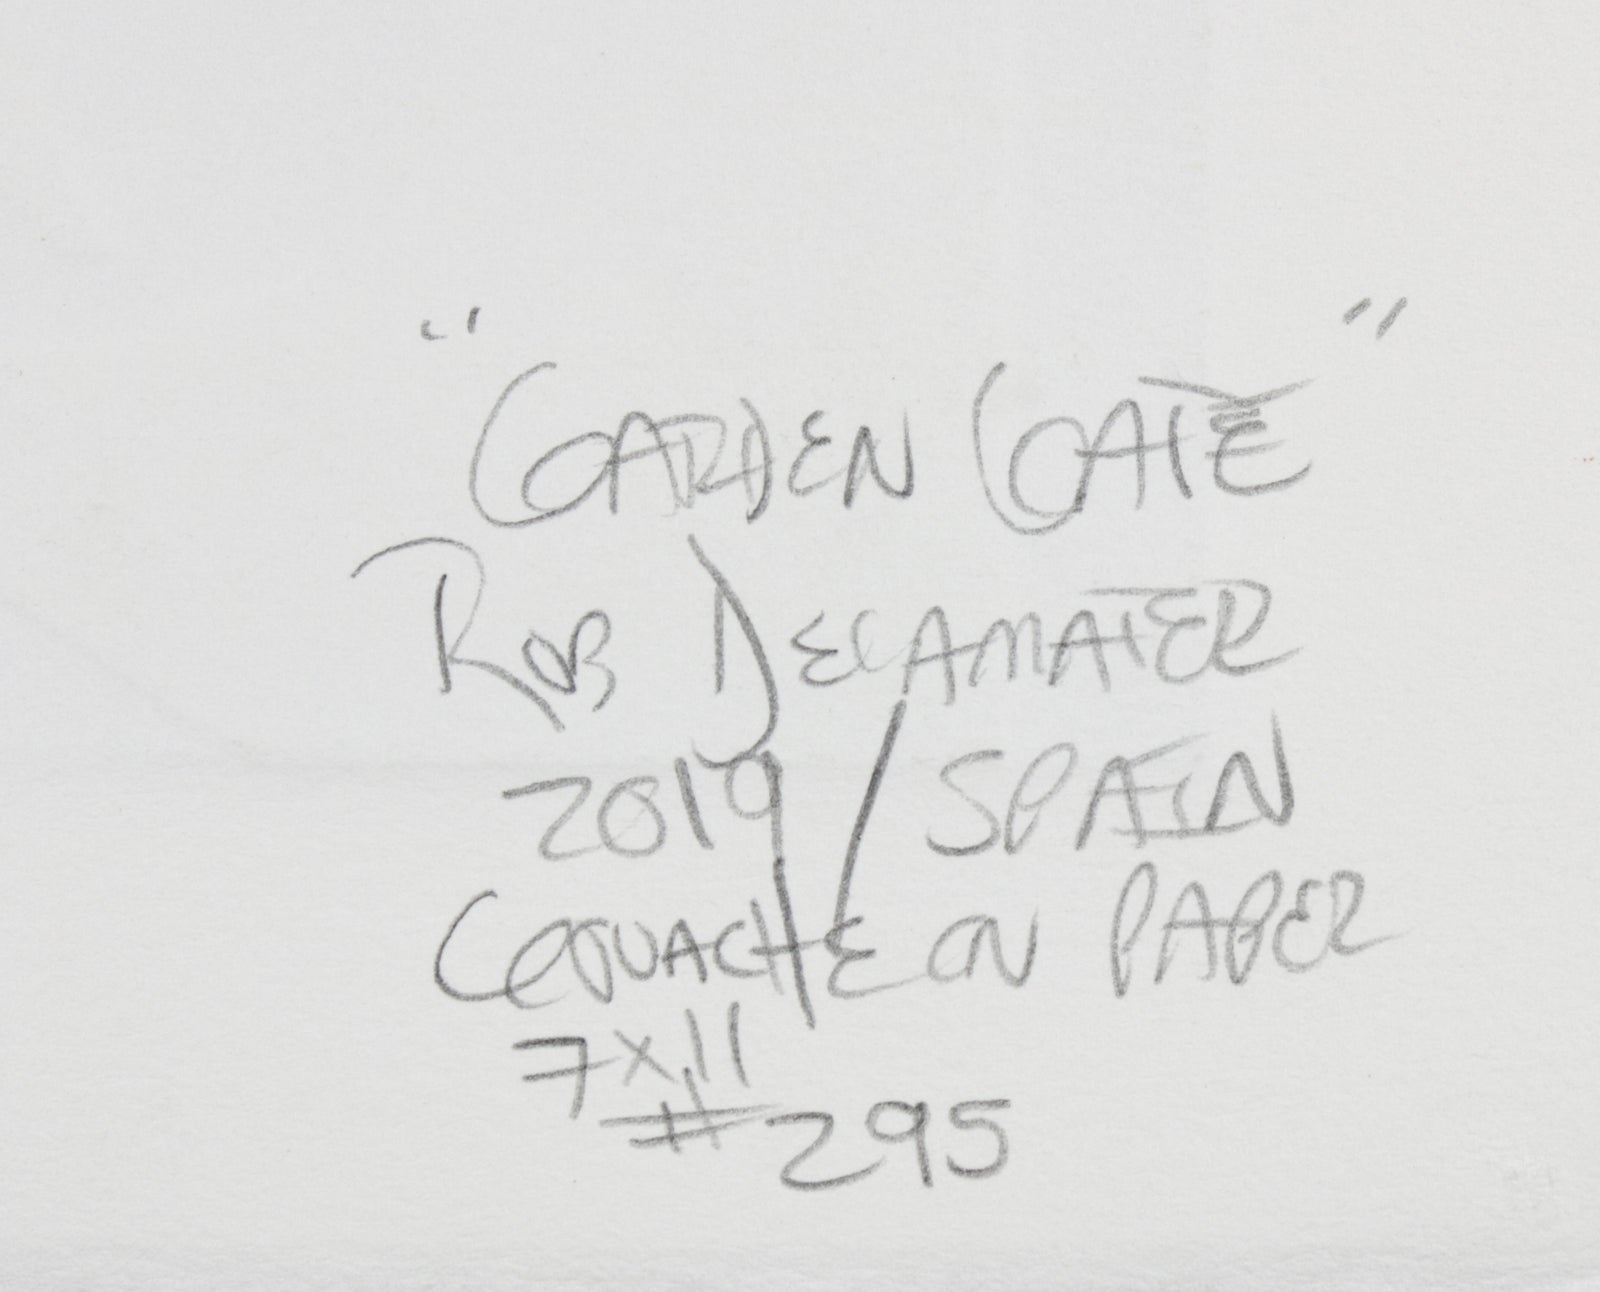 "GARDEN GATE"
ROB DELAMATER
2019 / SPAIN
GOUACHE ON PAPER
7x11
#295